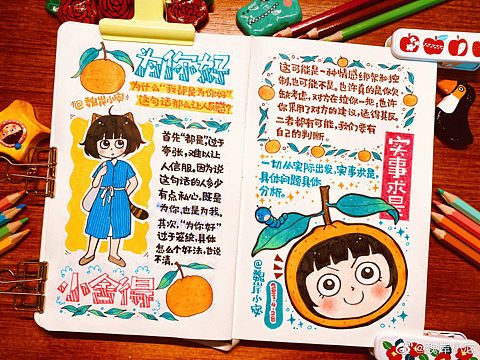 为你好
为什么“我都是为你好”
这句话那么让人反感?
首先“都是”过于
夸张,难以让
人信服。因为说
这句话的人多少
有点私心,既是
为你,也是为我。
其次,“为你好”
过于笼统,具体
怎么个好法,也说
不清。
小舍得
这可能是一种情感绑架和控
制,也可能不是。也许真的是你欠
缺考虑,对方在拉你一把,也许
你采用了对方的建议,适得其反。
二者都有可能,我们要有
自己的判断。
实事求是
一切从实际出发,实事求是。
具体问题具体
分析。
2021.4.28